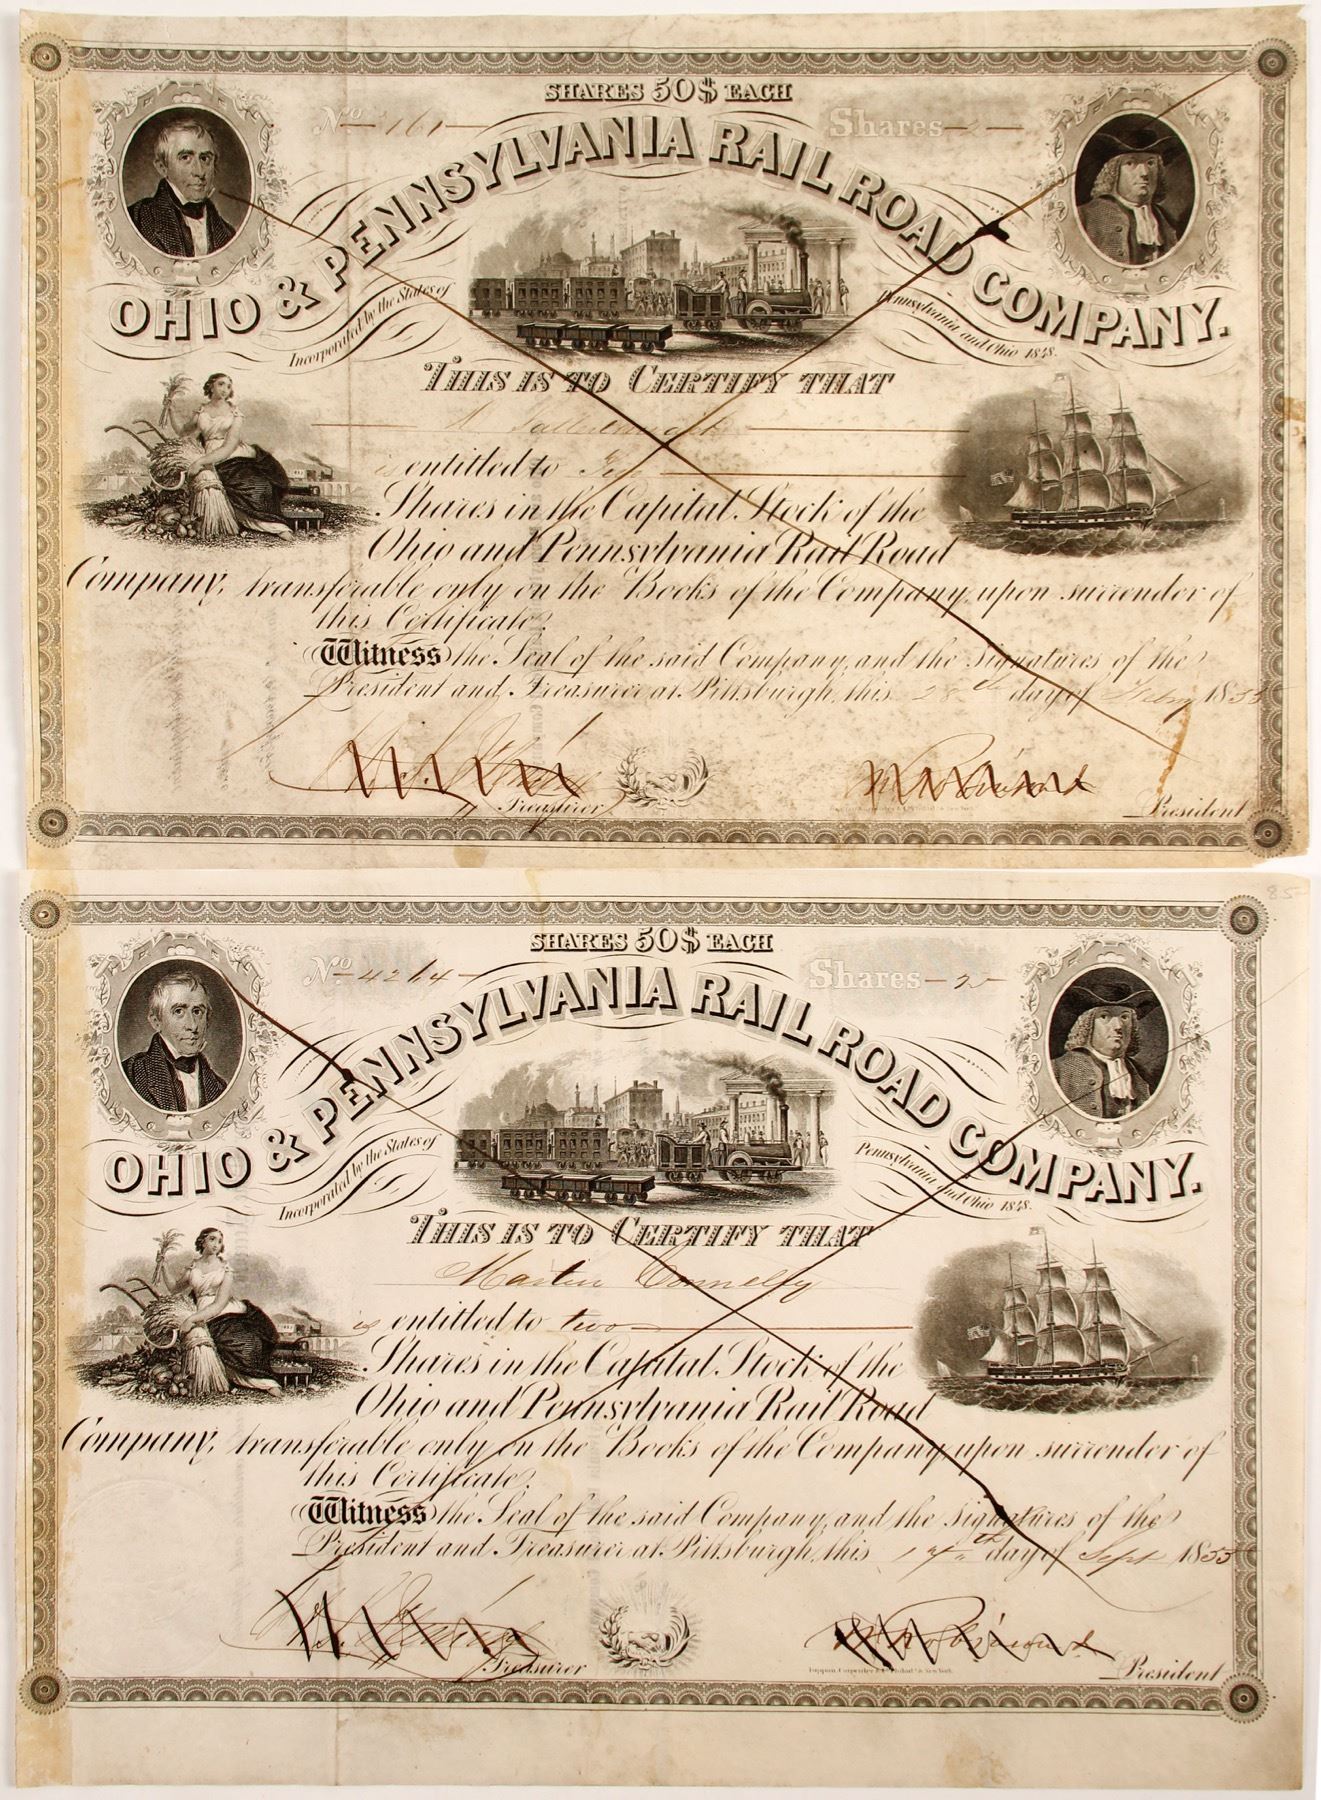 SHARES 50$ EACH
No 2161 Shares 2
OHIO & PENNSYLVANIA RAIL ROAD COMPANY.
Incorporated by the States of Pennsylvania and Ohio 1848.
THIS IS TO CERTIFY THAT
is entitled to
Shares in the Capital Stock of the
Ohio and Pennsylvania Rail Road
Company, transferable only on the Books of the Company, upon surrender of
this Certificate.
Witness the Seal of the said Company, and the Signatures of the
President and Treasurer at Pittsburgh, this 28th day of Feby 1855
Treasurer President
85
SHARES 50$ EACH
No 4264 Shares 2
OHIO & PENNSYLVANIA RAIL ROAD COMPANY.
Incorporated by the States of Pennsylvania and Ohio 1848.
THIS IS TO CERTIFY THAT
Martin Connelly
is entitled to two
Shares in the Capital Stock of the
Ohio and Pennsylvania Rail Road
Company, transferable only on the Books of the Company, upon surrender of
this Certificate.
Witness the Seal of the said Company, and the Signatures of the
President and Treasurer at Pittsburgh, this day of Sept 1855
Treasurer Toppan, Carpenter & Co. Philada & New York President